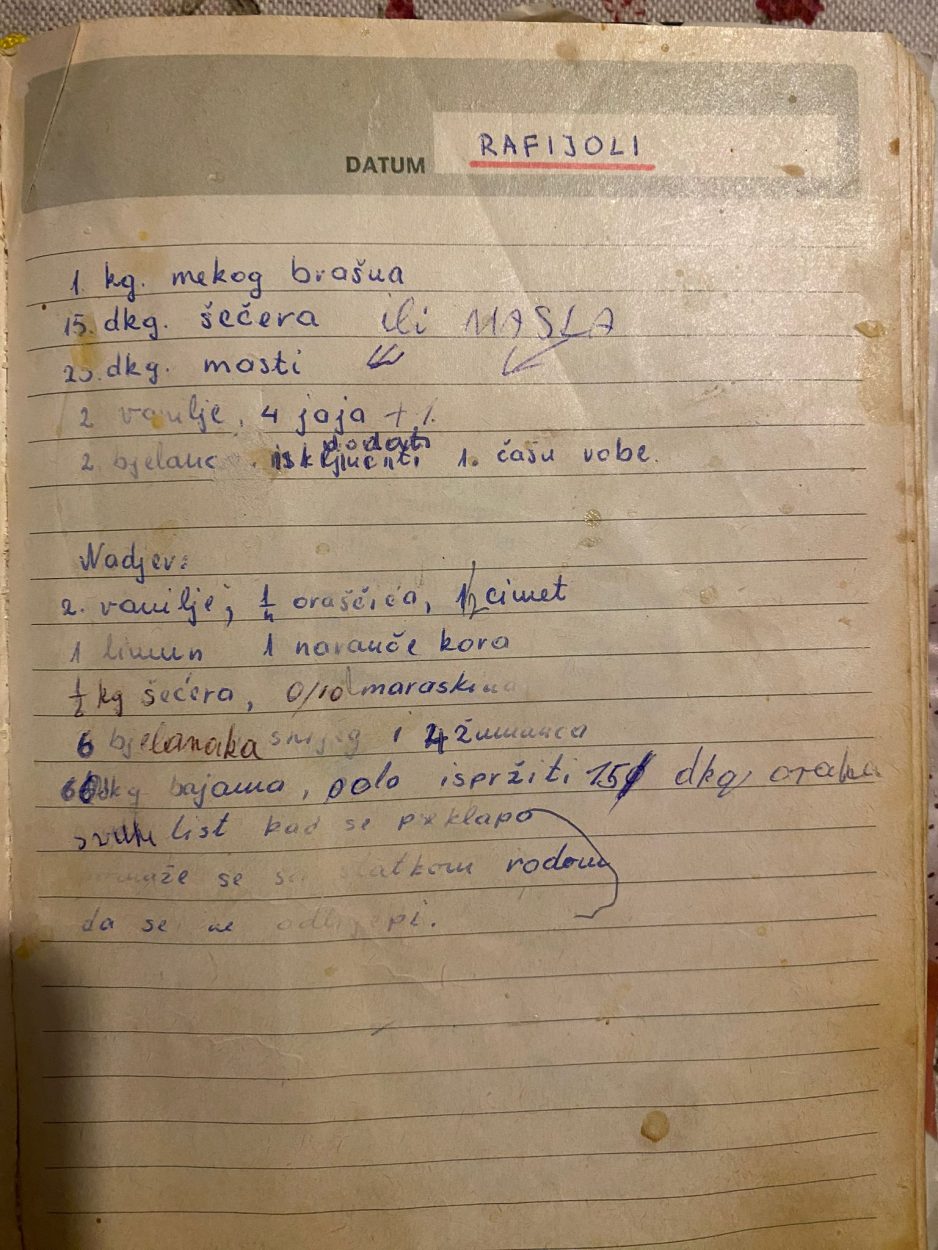 RAFIJOLI
DATUM
1 kg. mekog brašna
15. dkg. šečera ili MASLA
25. dkg. masti
2 vanilje, 4 jaja +
dodati
2 bjelanc 1. čašu vode.
Nadjev:
2. vanilje, 1/4 oraščića, 1/2 cimet
1 limun 1 naranče kora
1/2 kg šećera, 0/10 maraskina
6 bjelanaka snijeg i 4 žumanca
60 dkg bajama, polo ispržiti 15 dkg, oraha
list kad se preklapo
maže se sa slatkom vodom
da se ne odlijepi.